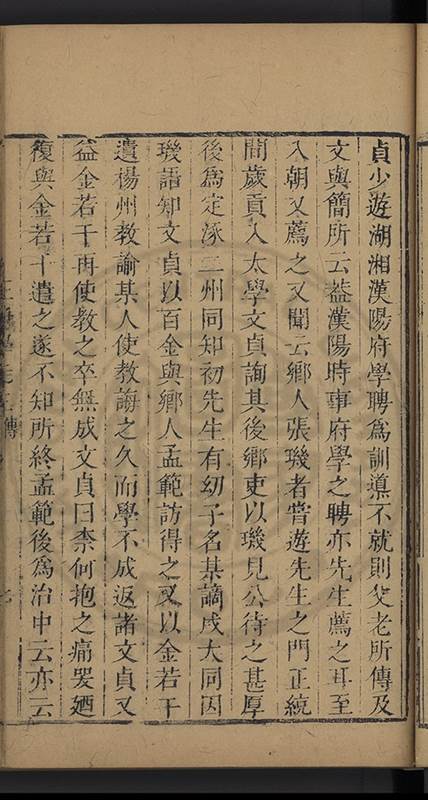 貞少遊湖湘漢陽府學聘為訓導不就則父老所傳及
文與簡所云葢漢陽時事府學之聘亦先生薦之耳至
入朝又薦之又聞云鄉人張璣者嘗遊先生之門正統
間歲貢入太學文貞詢其後鄉吏以璣見公待之甚厚
後為定涿二州同知初先生有幼子名某謫戍大同因
璣語知文貞以百金與鄉人孟範訪得之又以金若干
遺楊州教諭某人使教誨之久而學不成返諸文貞又
益金若干再使教之卒無成文貞曰柰何抱之痛哭廼
復與金若干遣之遂不知所終孟範後為治中云亦云
傳